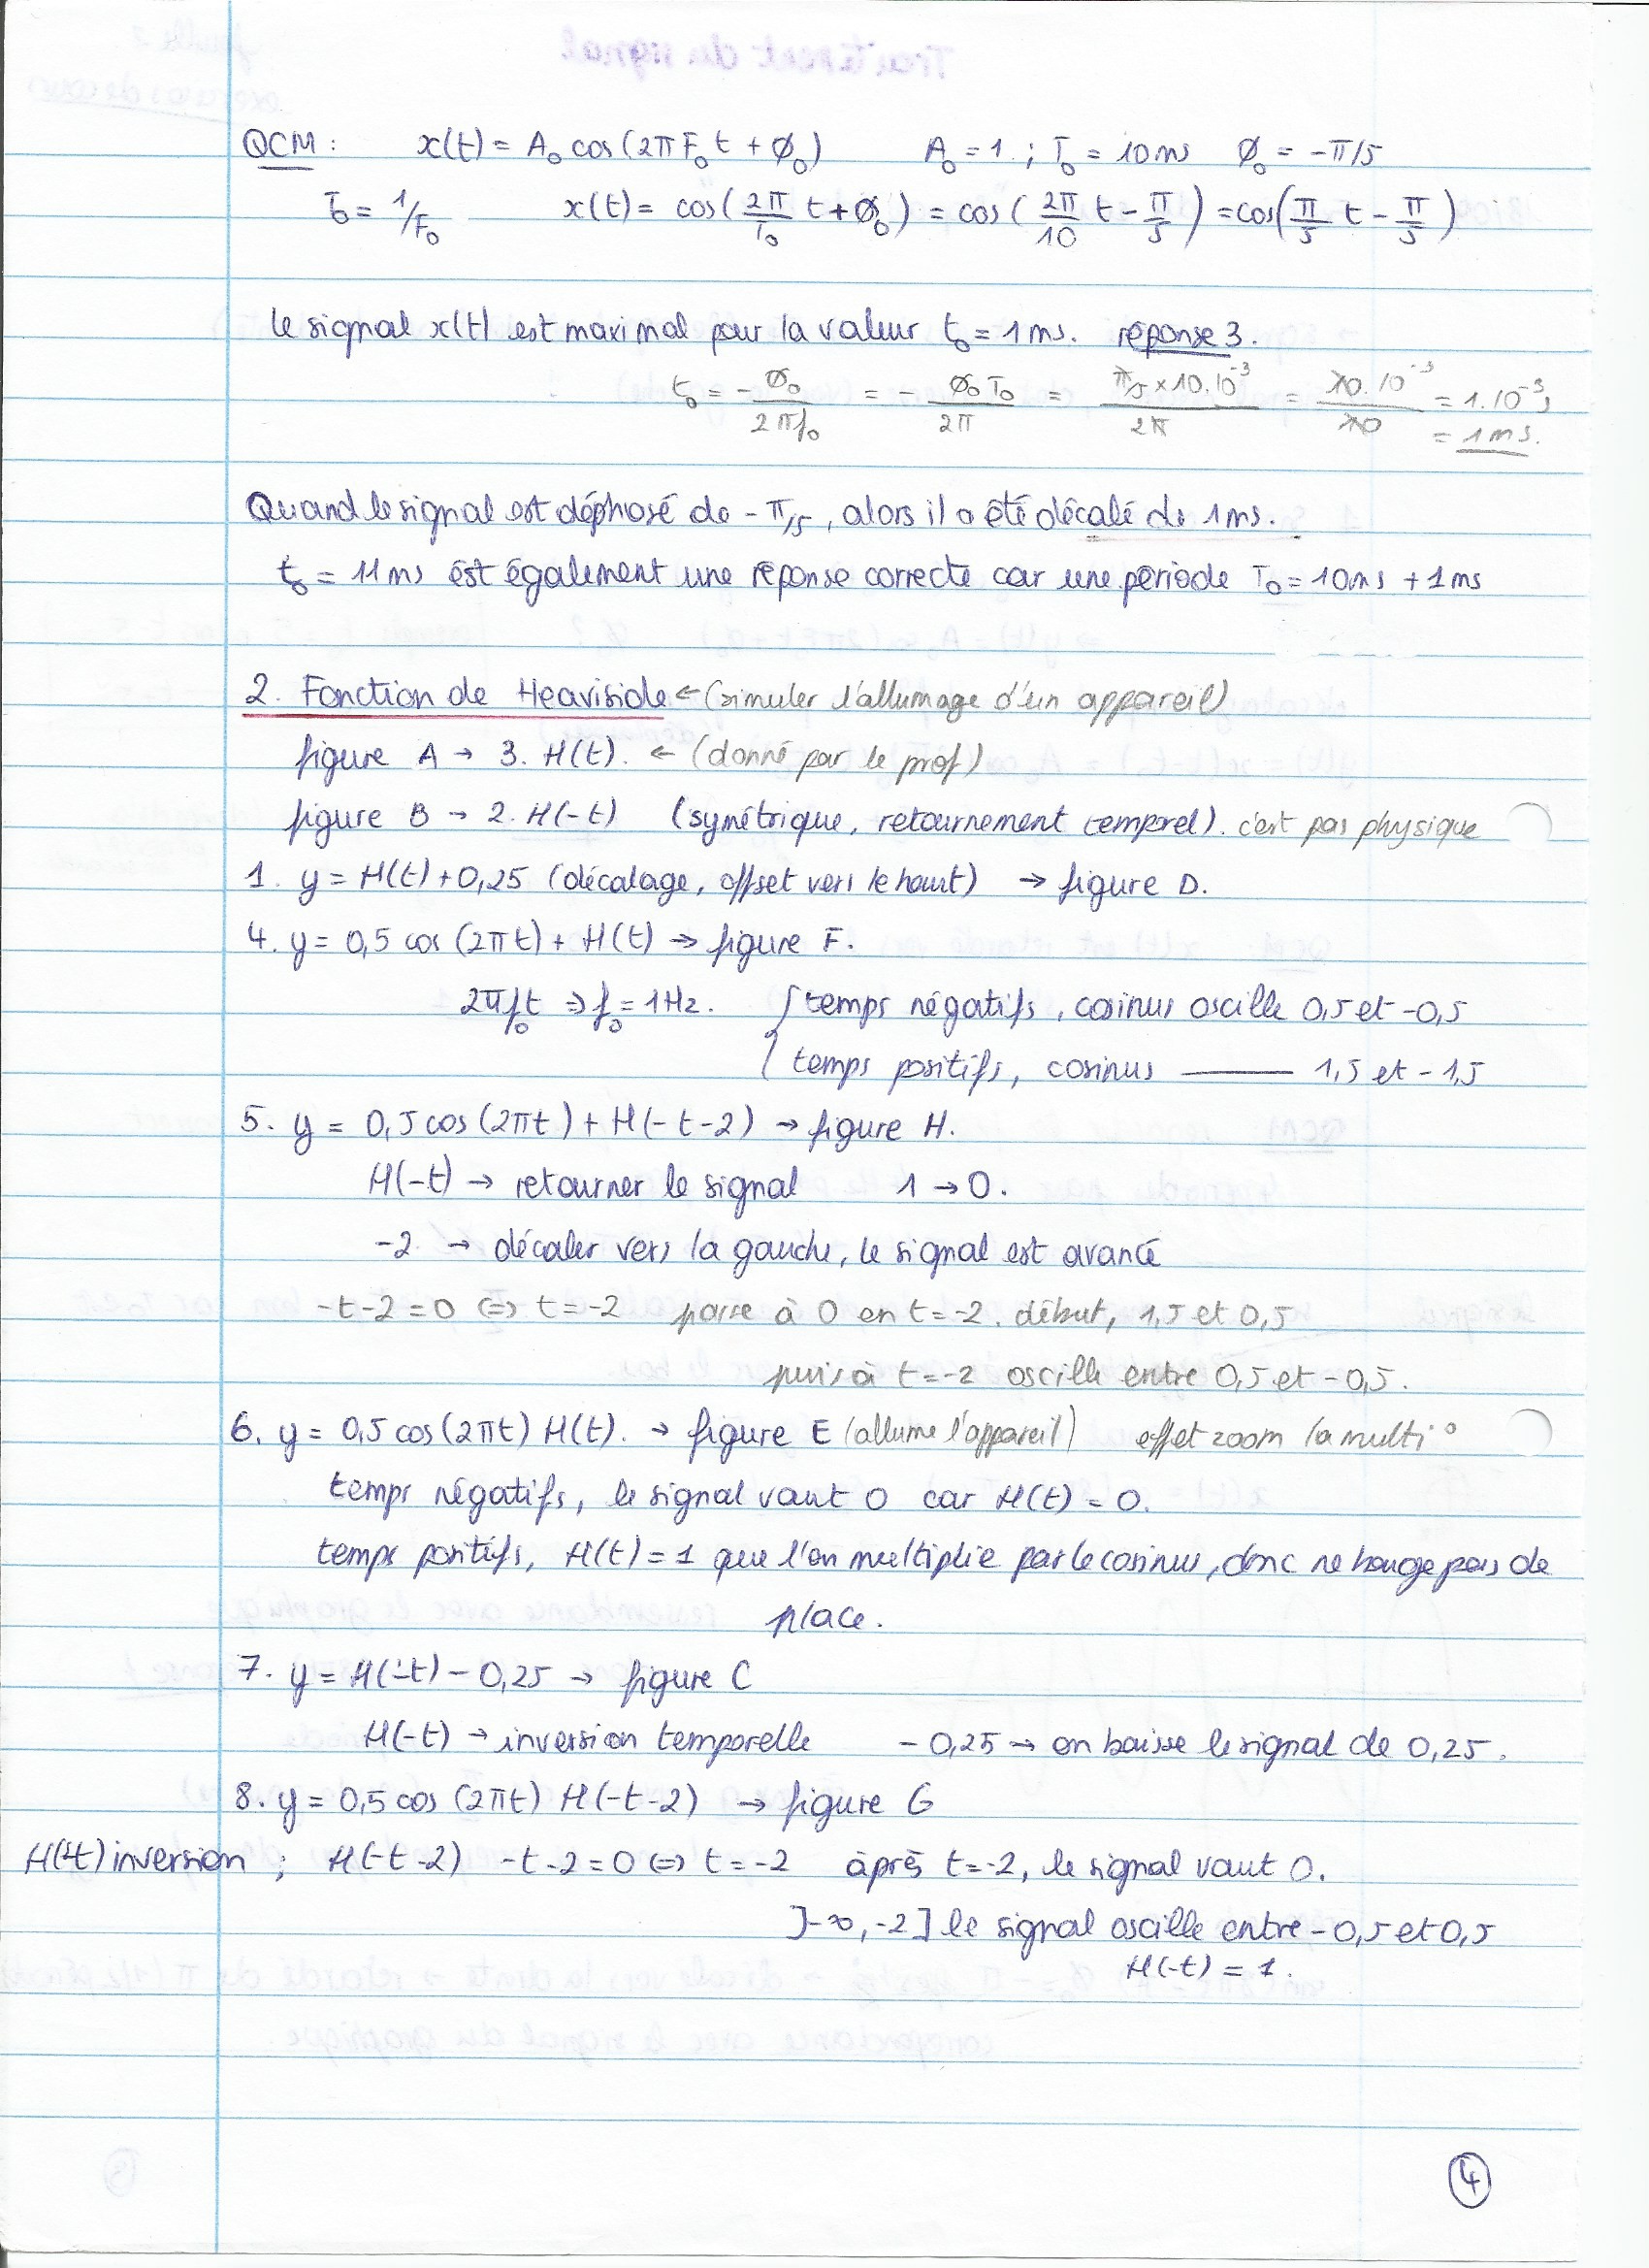 QCM : x(t) = A₀ cos(2πF₀t + Ø₀) A₀ = 1 ; T₀ = 10ms Ø₀ = -π/5
T₀ = 1/F₀ x(t) = cos(2π/T₀ t + Ø₀) = cos(2π/10 t - π/5) = cos(π/5 t - π/5)
le signal x(t) est maximal pour la valeur t₀ = 1ms. réponse 3.
t₀ = - Ø₀/2πf₀ = - Ø₀T₀/2π = π/5 × 10.10⁻³/2π = 10.10⁻³/10 = 1.10⁻³s
= 1ms.
Quand le signal est déphasé de -π/5, alors il a été décalé de 1ms.
t₀ = 11ms est également une réponse correcte car une période T₀ = 10ms + 1ms
2. Fonction de Heaviside ← (simuler l'allumage d'un appareil)
figure A → 3. H(t). ← (donné par le prof)
figure B → 2. H(-t) (symétrique, retournement temporel). c'est pas physique
1. y = H(t) + 0,25 (décalage, offset vers le haut) → figure D.
4. y = 0,5 cos (2πt) + H(t) → figure F.
2πf₀t ⇒ f₀ = 1Hz. { temps négatifs, cosinus oscille 0,5 et -0,5
temps positifs, cosinus ——— 1,5 et -1,5
5. y = 0,5 cos(2πt) + H(-t-2) → figure H.
H(-t) → retourner le signal 1 → 0.
-2 → décaler vers la gauche, le signal est avancé
-t-2 = 0 ⇔ t = -2 passe à 0 en t = -2. début, 1,5 et 0,5
puis à t = -2 oscille entre 0,5 et -0,5.
6. y = 0,5 cos(2πt) H(t). → figure E (allume l'appareil) effet zoom la multi°
temps négatifs, le signal vaut 0 car H(t) = 0.
temps positifs, H(t) = 1 que l'on multiplie par le cosinus, donc ne bouge pas de
place.
7. y = H(-t) - 0,25 → figure C
H(-t) → inversion temporelle -0,25 → on baisse le signal de 0,25.
8. y = 0,5 cos (2πt) H(-t-2) → figure G
H(-t) inversion ; H(-t-2) -t-2 = 0 ⇔ t = -2 après t = -2, le signal vaut 0.
]-∞, -2] le signal oscille entre -0,5 et 0,5
H(-t) = 1.
4